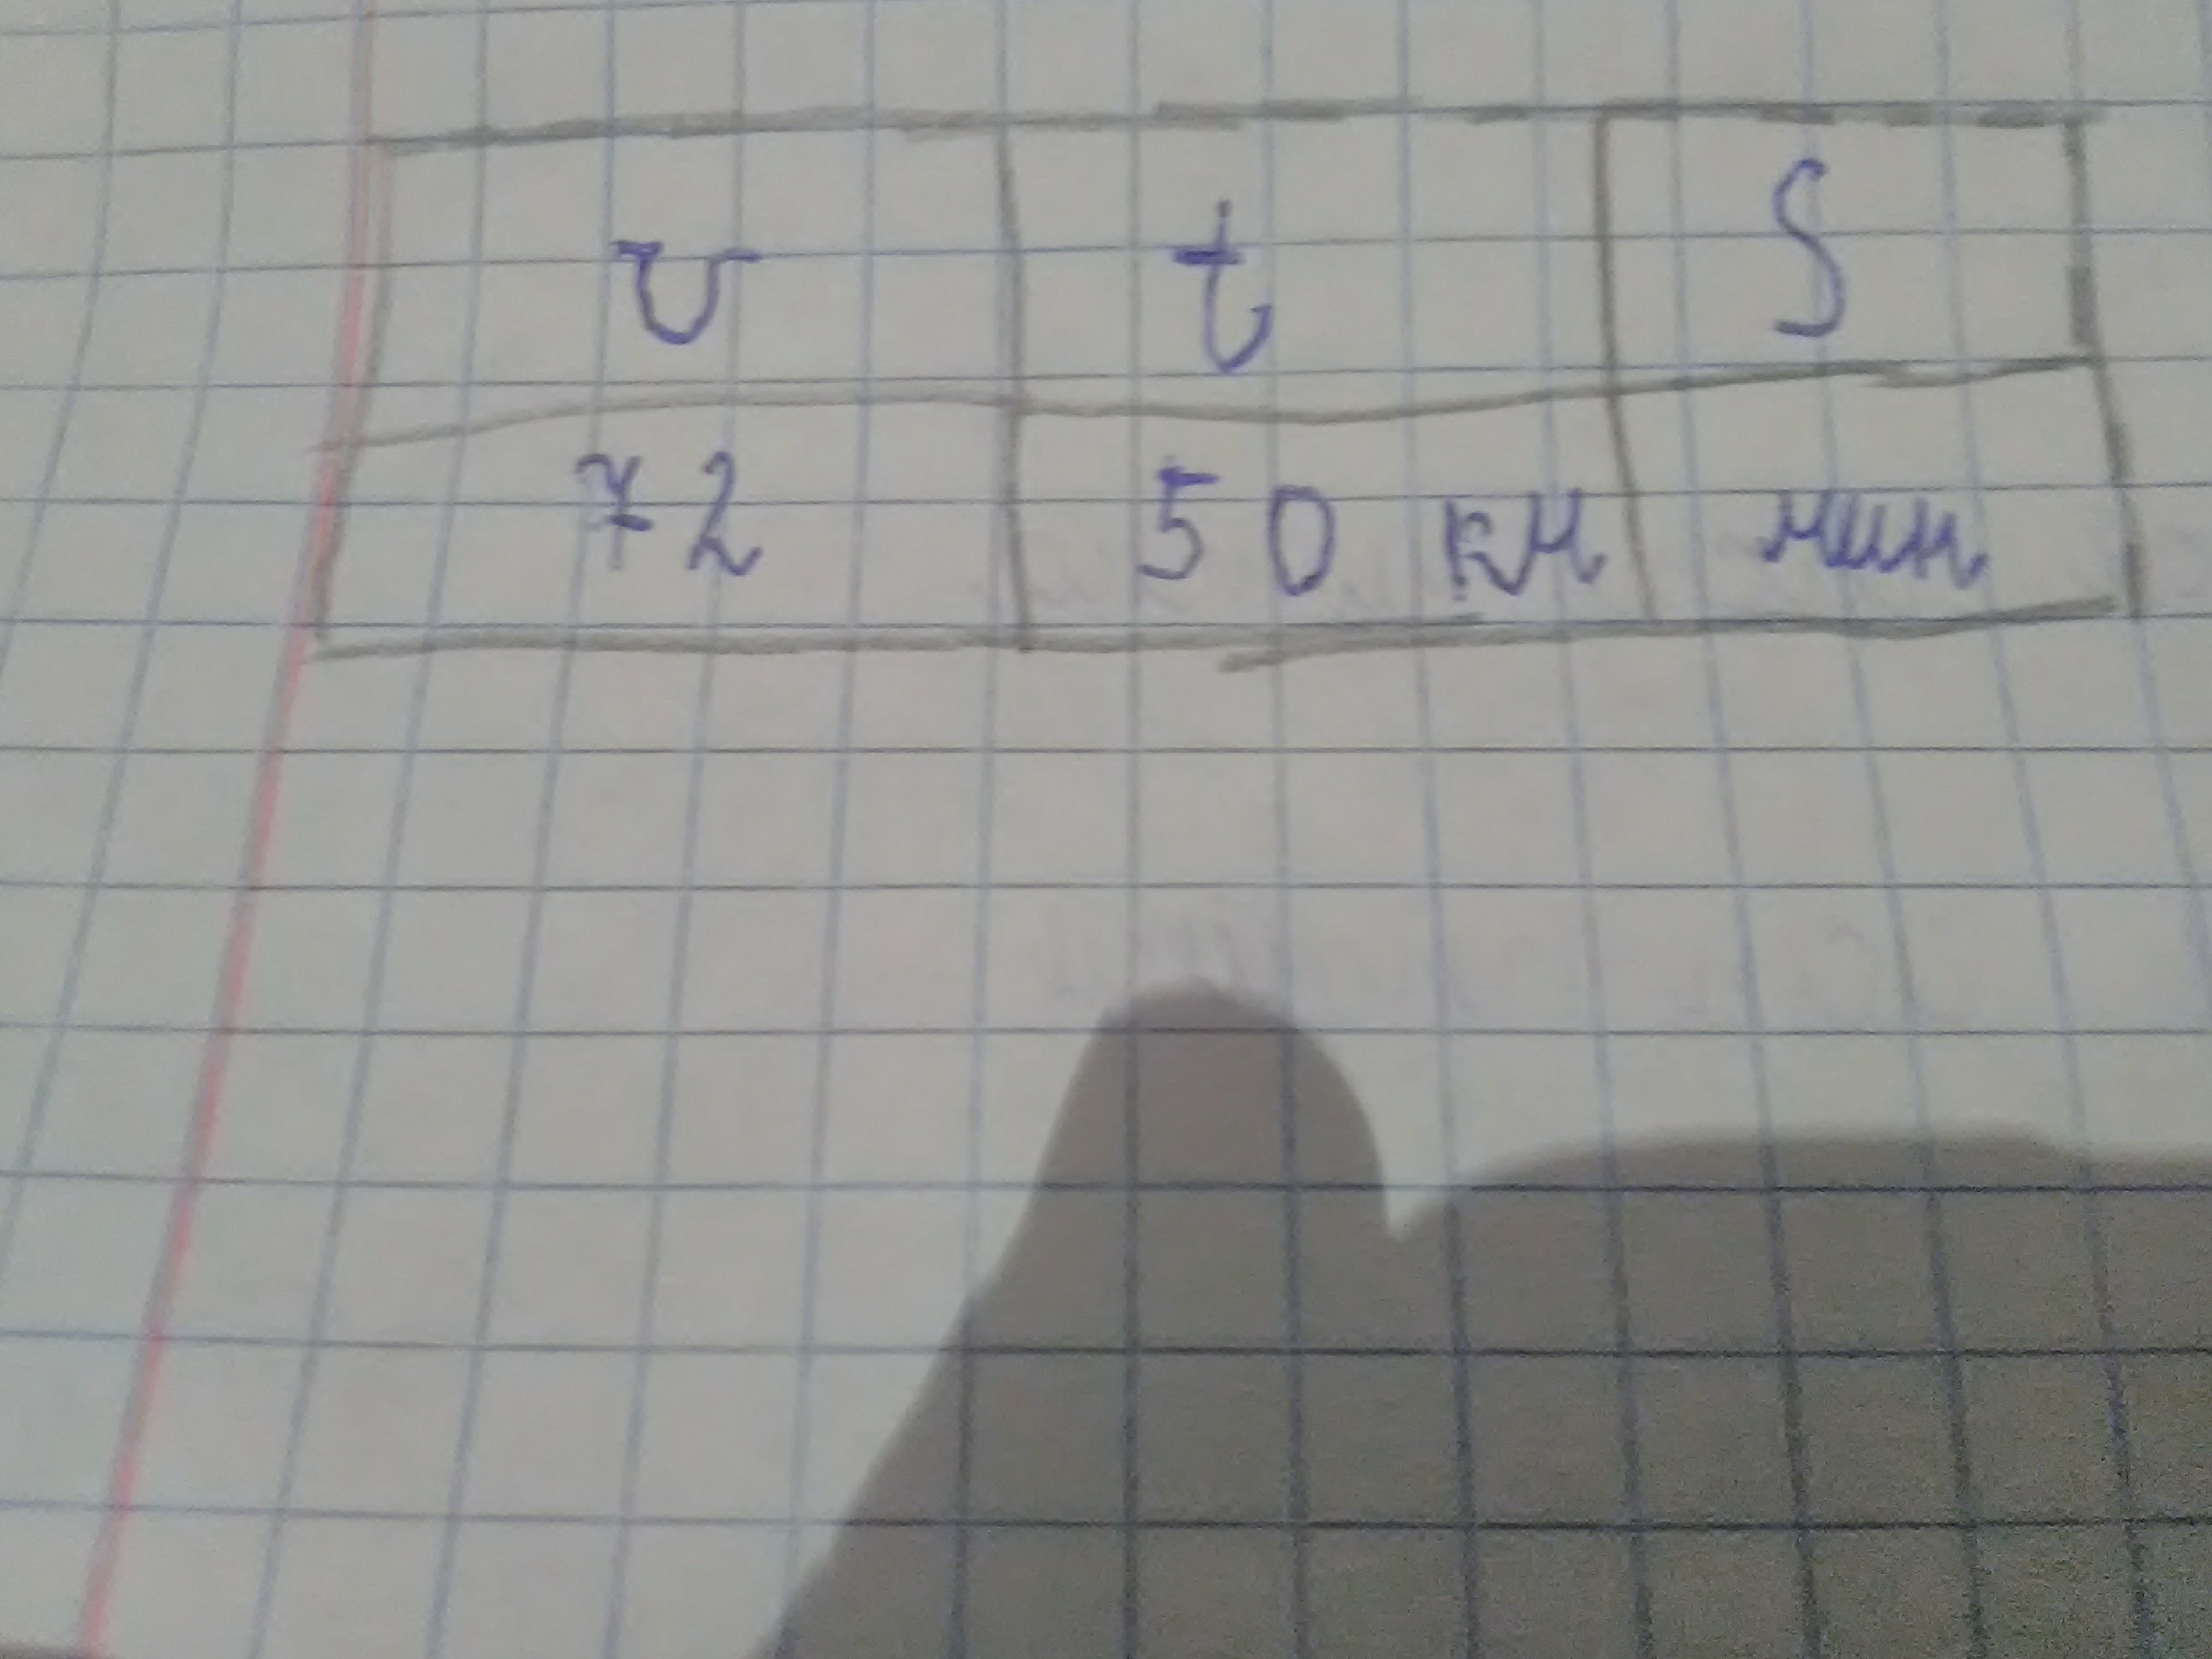 v t S
72 50 км мин